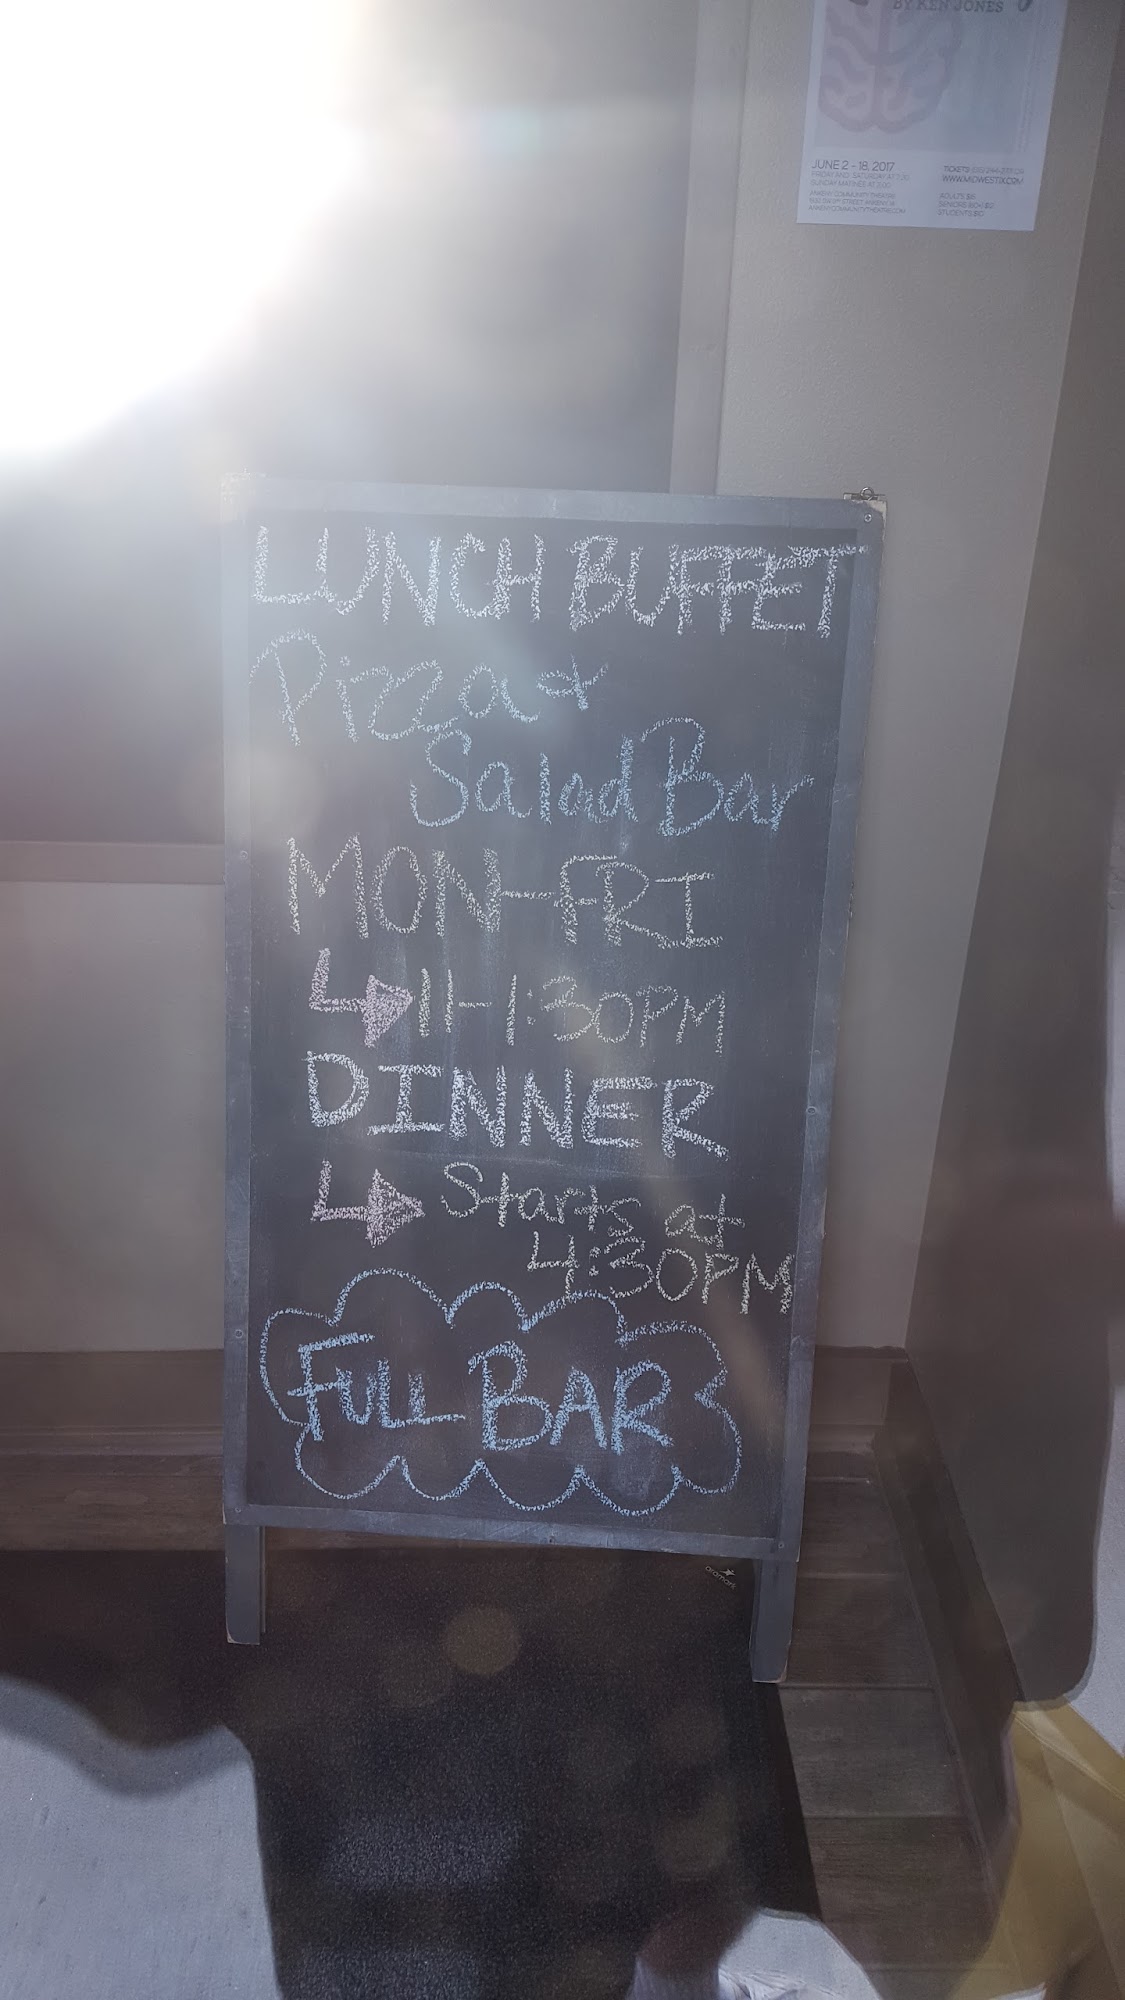 BY KEN JONES
JUNE 2 - 18, 2017
FRIDAY AND SATURDAY AT 7:30
SUNDAY MATINEES AT 2:00
ANKENY COMMUNITY THEATRE
ANKENYCOMMUNITYTHEATRE.COM
WWW.MIDWESTIX.COM
ADULTS $15
STUDENTS $10
LUNCH BUFFET
Pizza &
Salad Bar
MON-FRI
11-1:30PM
DINNER
Starts at
4:30PM
FULL BAR
aramark